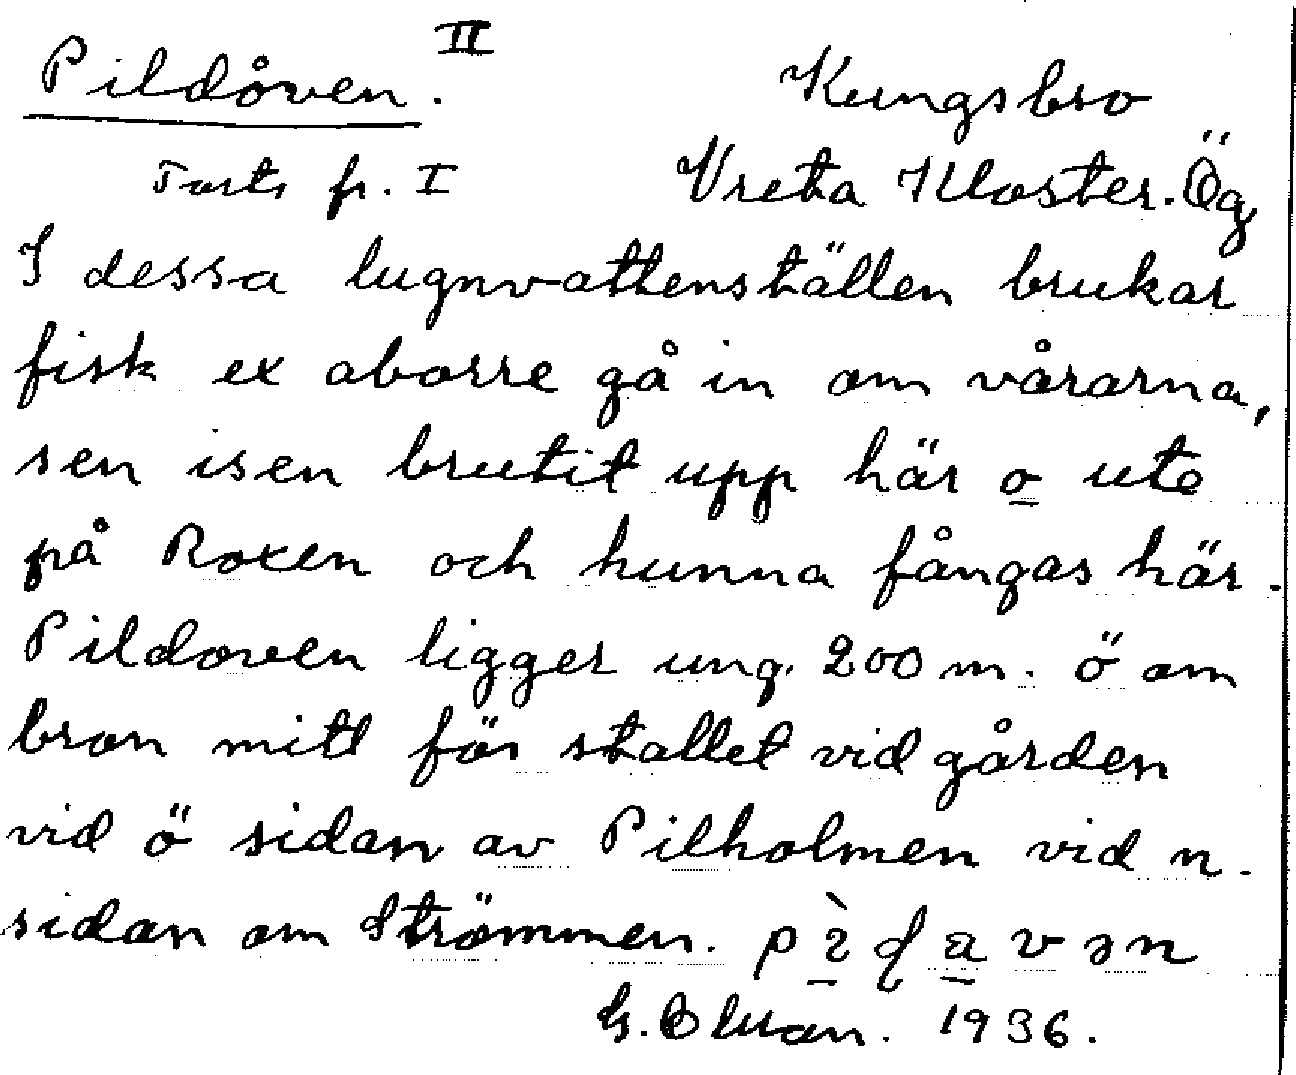 Pildåven. II
Kungsbro
Forts fr. I
Vreta Kloster. Ög
I dessa lugnvattenställen brukar
fisk ex aborre gå in om vårarna,
sen isen brutit upp här o ute
på Roxen och kunna fångas här.
Pildoven ligger ung. 200 m. ö om
bron mitt för stallet vid gården
vid ö sidan av Pilholmen vid n.
sidan om Strömmen.
G. 1936.